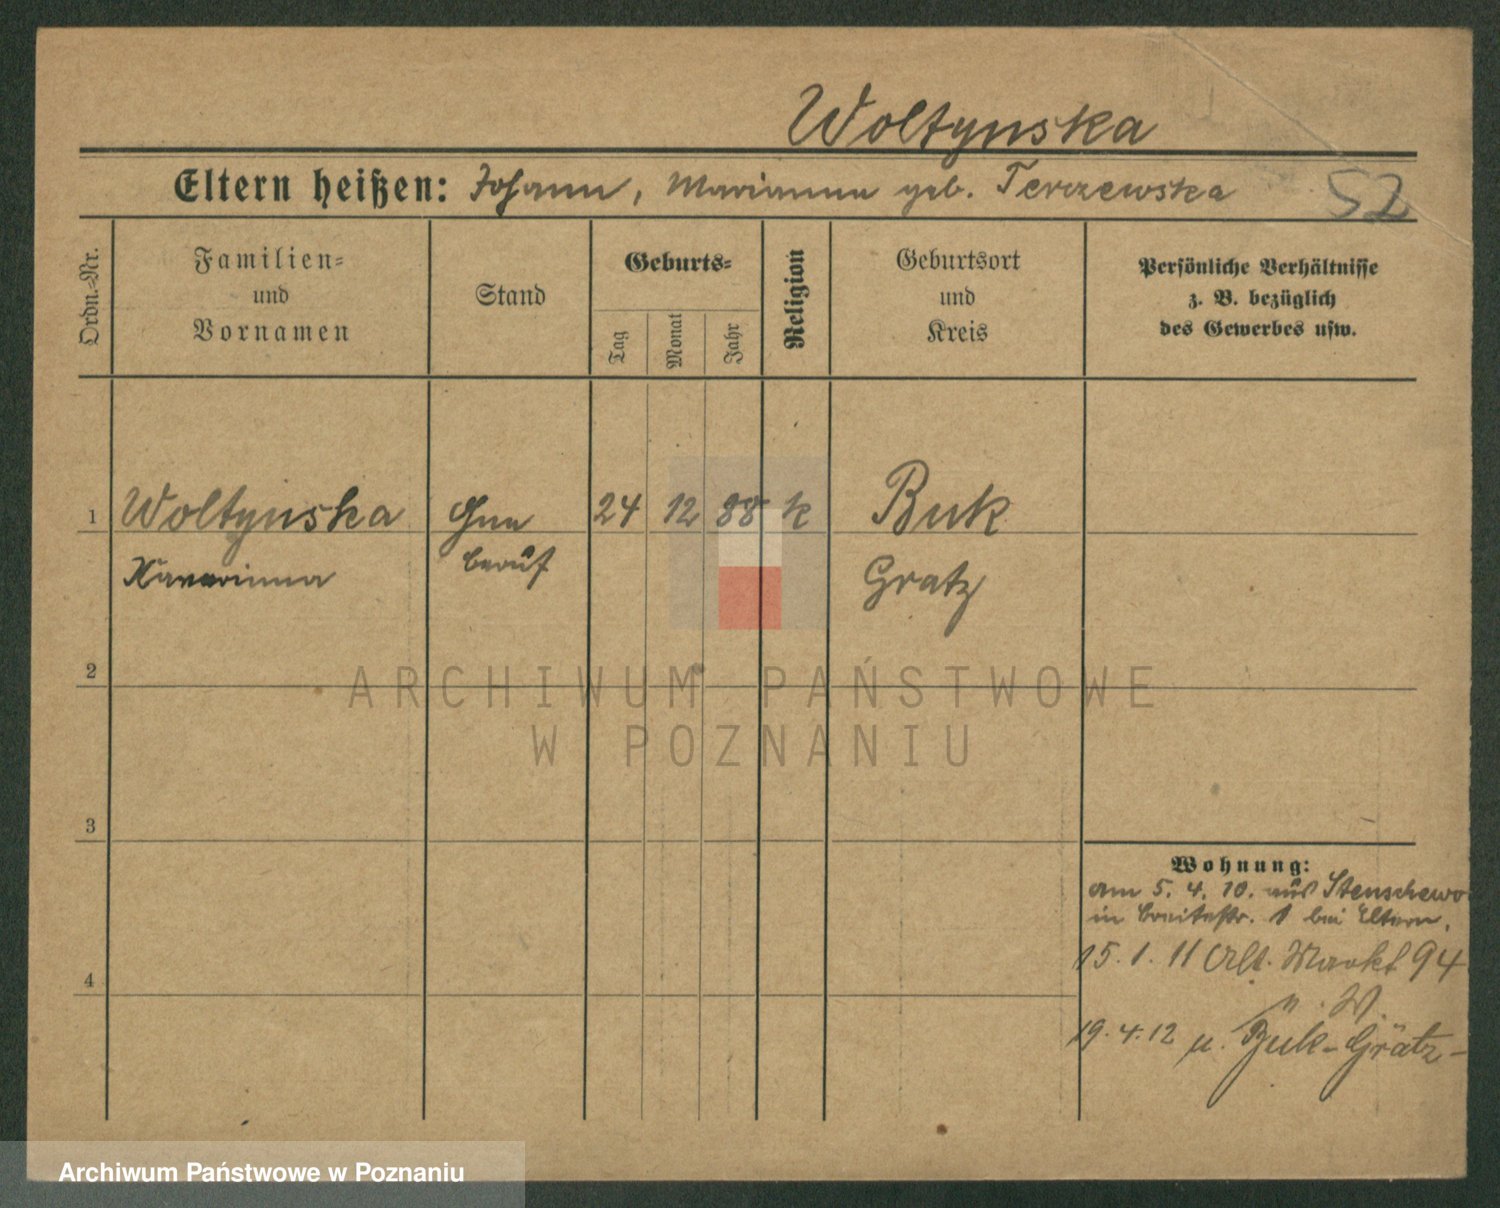 Woltynska
Eltern heißen: Johann, Marianna geb. Terczewska 52
Ordn.-Nr.
Familien-
und
Vornamen
Stand
Geburts-
Tag
Monat
Jahr
Religion
Geburtsort
und
Kreis
Persönliche Verhältnisse
z. B. bezüglich
des Gewerbes usw.
1 Woltynska 24 12 88 k Buk
beruf Gratz
2
ARCHIWUM PAŃSTWOWE
W POZNANIU
3
Wohnung:
am 5. 4. 10. aus Stenschewo
in Breitestr. 1 bei Eltern.
15. 1. 11 Alt. Markt 94
4
n. W.
19. 4. 12 u. Buk-Grätz-
Archiwum Państwowe w Poznaniu